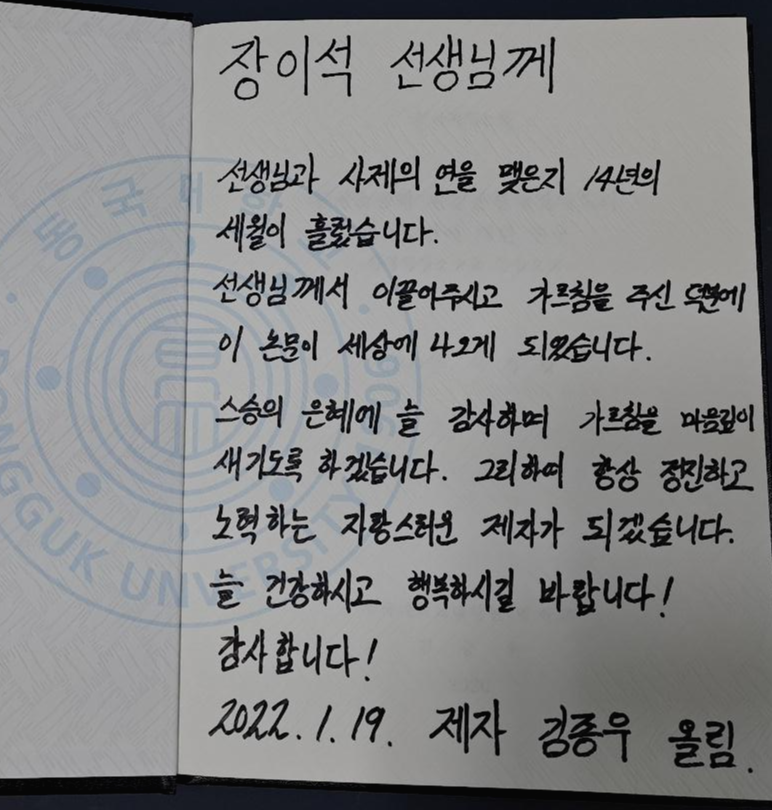 장이석 선생님께
선생님과 사제의 연을 맺은지 14년의
세월이 흘렀습니다.
선생님께서 이끌어주시고 가르침을 주신 덕분에
이 논문이 세상에 나오게 되었습니다.
스승의 은혜에 늘 감사하며 가르침을 마음깊이
새기도록 하겠습니다. 그리하여 항상 정진하고
노력하는 자랑스러운 제자가 되겠습니다.
늘 건강하시고 행복하시길 바랍니다!
감사합니다!
2022.1.19. 제자 김종우 올림.
동국대학교
DONGGUK UNIVERSITY 1906